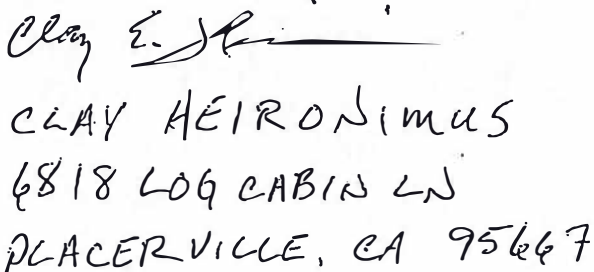 Clay E. H
CLAY HEIRONIMUS
6818 LOG CABIN LN
PLACERVILLE, CA 95667